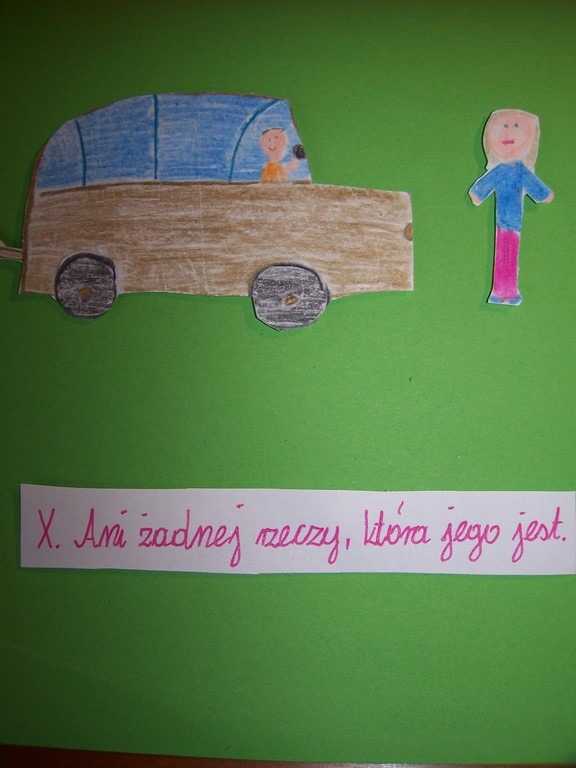 X. Ani żadnej rzeczy, która jego jest.